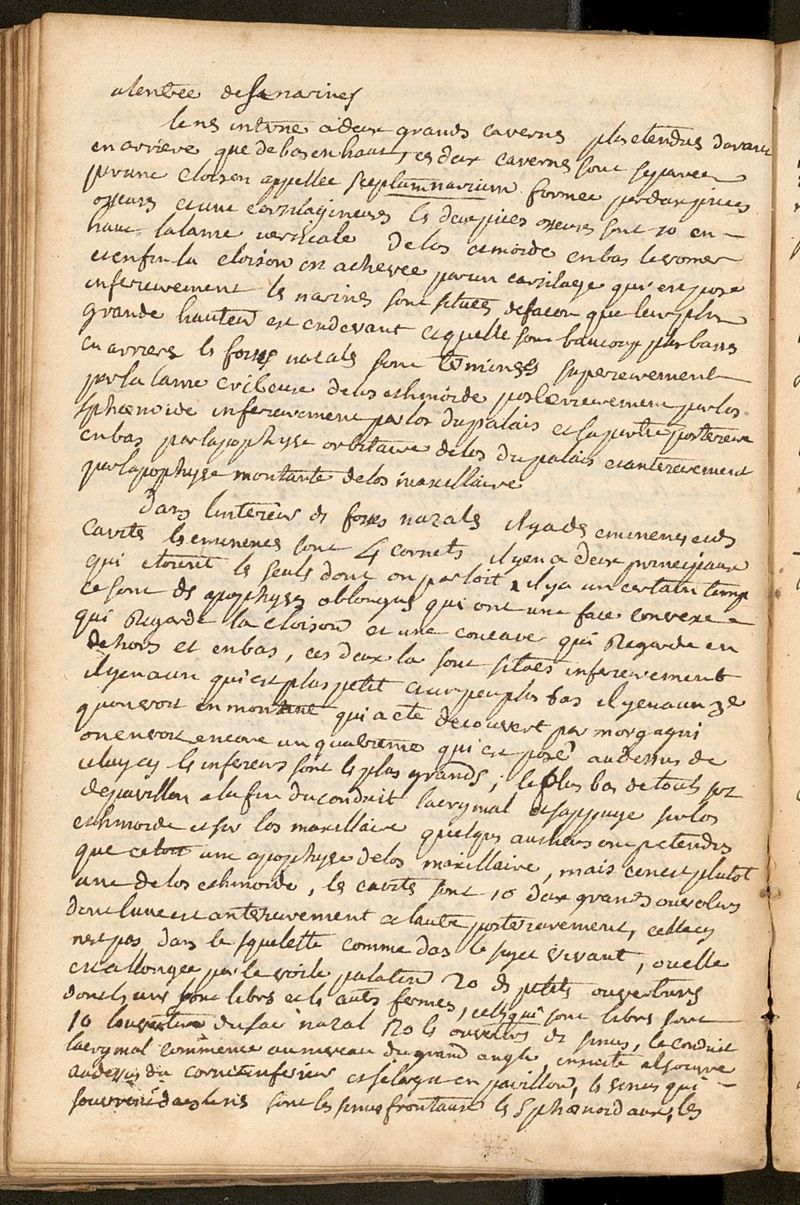 alentree des narines
le nes interne a deux grands cavernes plus etendues davant
en arriere que de bas en haut, ces deux cavernes sont separees
par une cloison appellee septum narium formee par deux pieces
osseuses et une cartilagineuse les deux pieces osseuses sont 10 en
haut la lame verticale de los etmoide en bas le vomer
et enfin la cloison est achevee par un cartilage qui est posé
inferieurement les narines sont situees de facon que leur plus
grande hauteur est en devant et quelle sont baucoup plus basses
en arriere les fosses nazales sont terminees superieurement
par la lame cribleuse de los ethmoide posterieurement par los
sphœnoide inferieurement par los du palais et sa partie posterieure
en bas par lapophyse orbitaire de los du palais et anterieurement
par lapophyse montante de los maxillaire
Dans linterieur des fosses nazales il y a des eminences et des
cavités les eminences sont 4 cornets il y en a deux principaux
qui etoient les seuls dont on parloit il y a un certain temp
ce sont des apophyses oblongues qui ont une face convexe
qui Regarde la cloison et une concave qui Regarde en
dehors et en bas, ces deux la sont situés inferieurement
il y en a un qui est plus petit et un peu plus bas il y en a un 3e
quon voit en montant qui a eté decouvert par morgagni
on en voit encore un quatrieme qui est posé au dessus de
celuy cy les inferieurs sont les plus grands, le plus bas de tous sert
de pavillon a la fin du conduit lacrymal et sappuye sur los
ethmoide et sur los maxillaire quelques autheurs ont pretendu
que cetoit une apophyse de los maxillaire, mais cenest plutot
une de los ethmoide, les cavités sont 10 deux grands ouvertures
dont lune est anterieurement et lautre posterieurement, celle cy
nest pas dans le squelette comme dans le sujet vivant, ou elle
est allongee par le voile palatin 20 des petits ouvertures
dont les uns sont libres et les autres fermes, celles qui sont libres sont
10 louverture du sac nazal 20 les ouvertures des sinus, le conduit
lacrymal commence au niveau du grand angle ensuite il souvre
au dessus du cornet inferieur et selargit en pavillon, les sinus qui
souvrent dans le nes sont les sinus frontaux les sphœnoidaux, les